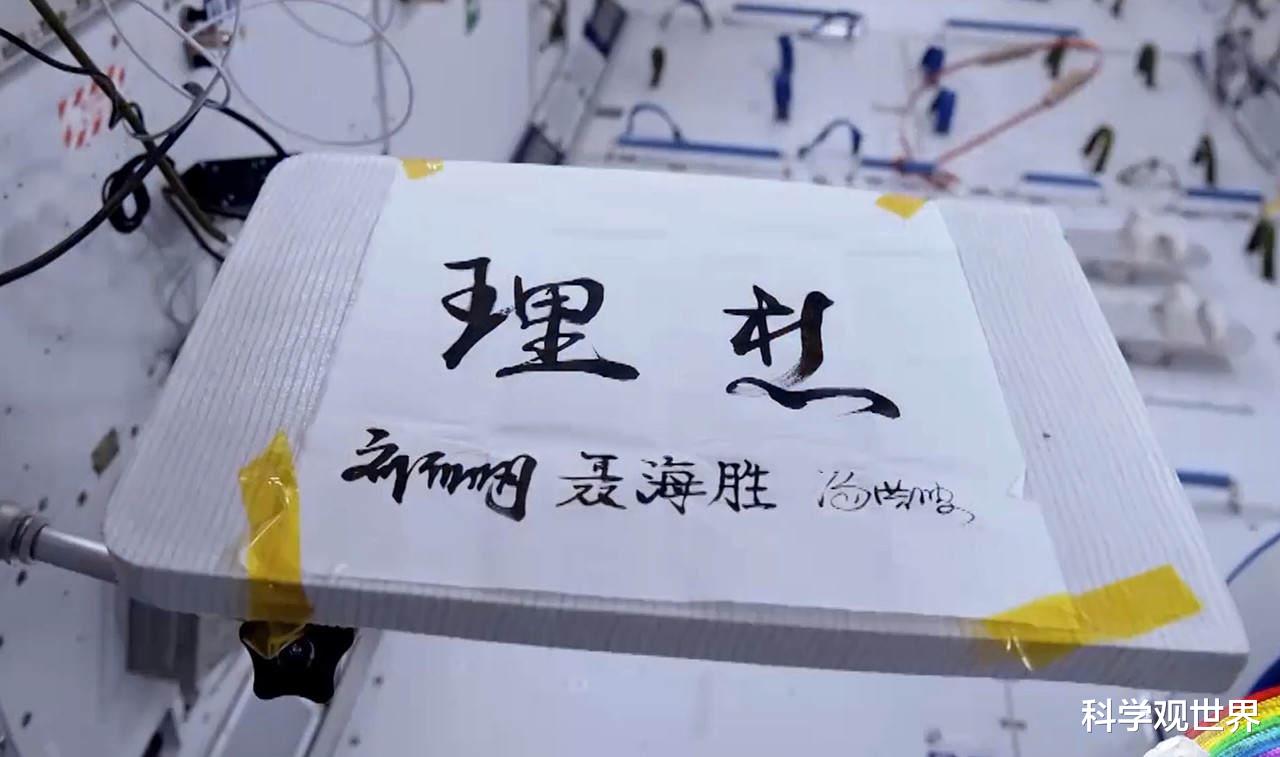 理想
刘伯明 聂海胜 汤洪波
科学观世界